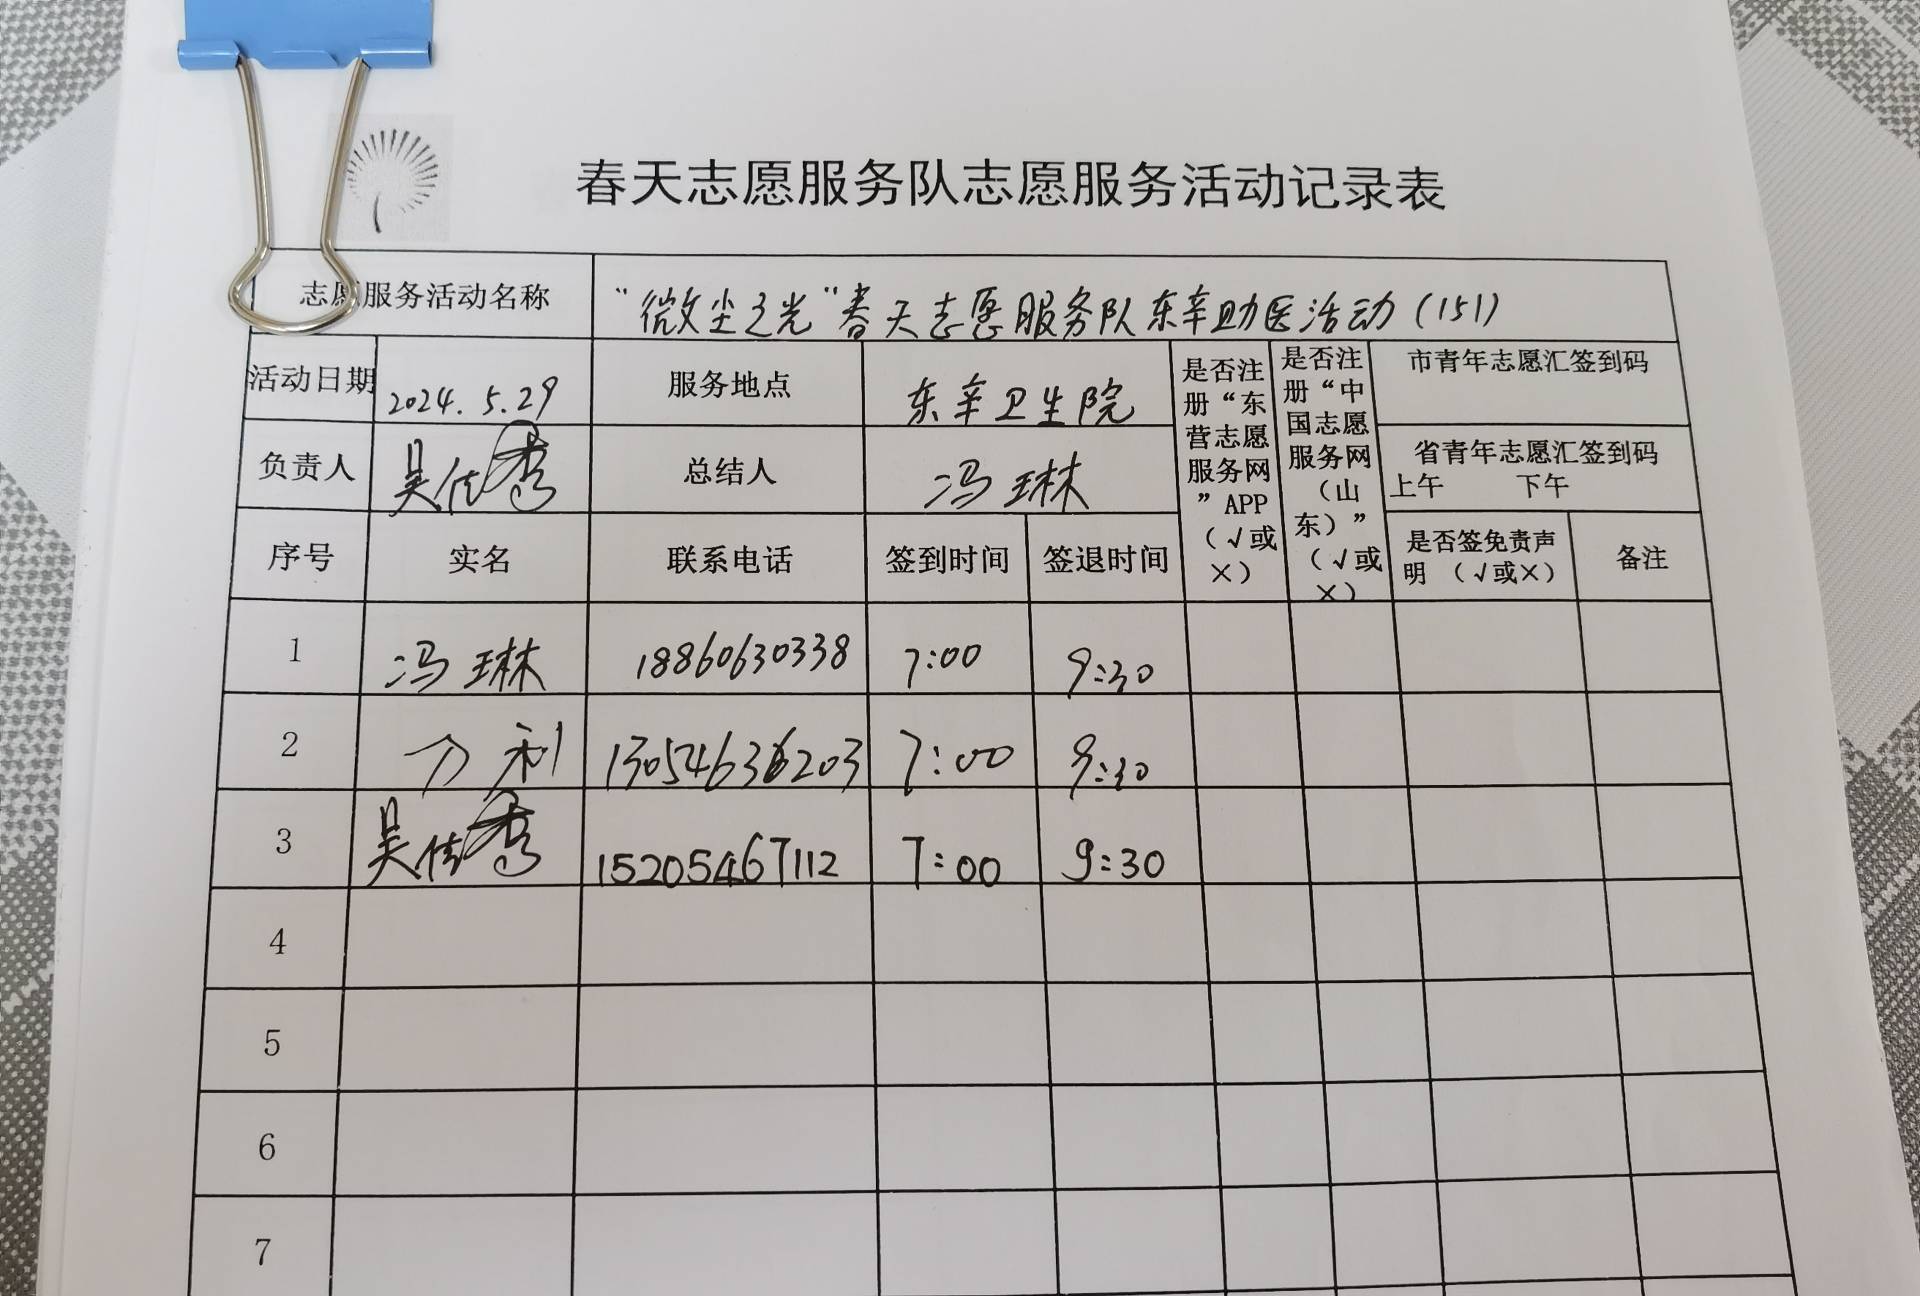 春天志愿服务队志愿服务活动记录表
志愿服务活动名称 “微尘之光”春天志愿服务队东辛助医活动（151）
活动日期 2024.5.29 服务地点 东辛卫生院
负责人 吴佳秀 总结人 冯琳
是否注
册“东
营志愿
服务网
”APP
（√或
×）
是否注
册“中
国志愿
服务网
（山
东）”
（√或
×）
市青年志愿汇签到码
省青年志愿汇签到码
上午 下午
序号 实名 联系电话 签到时间 签退时间
是否签免责声
明 （√或×）
备注
1 冯琳 18860630338 7:00 9:30
2 利 7:00 9:30
3 吴佳秀 15205467112 7:00 9:30
4
5
6
7